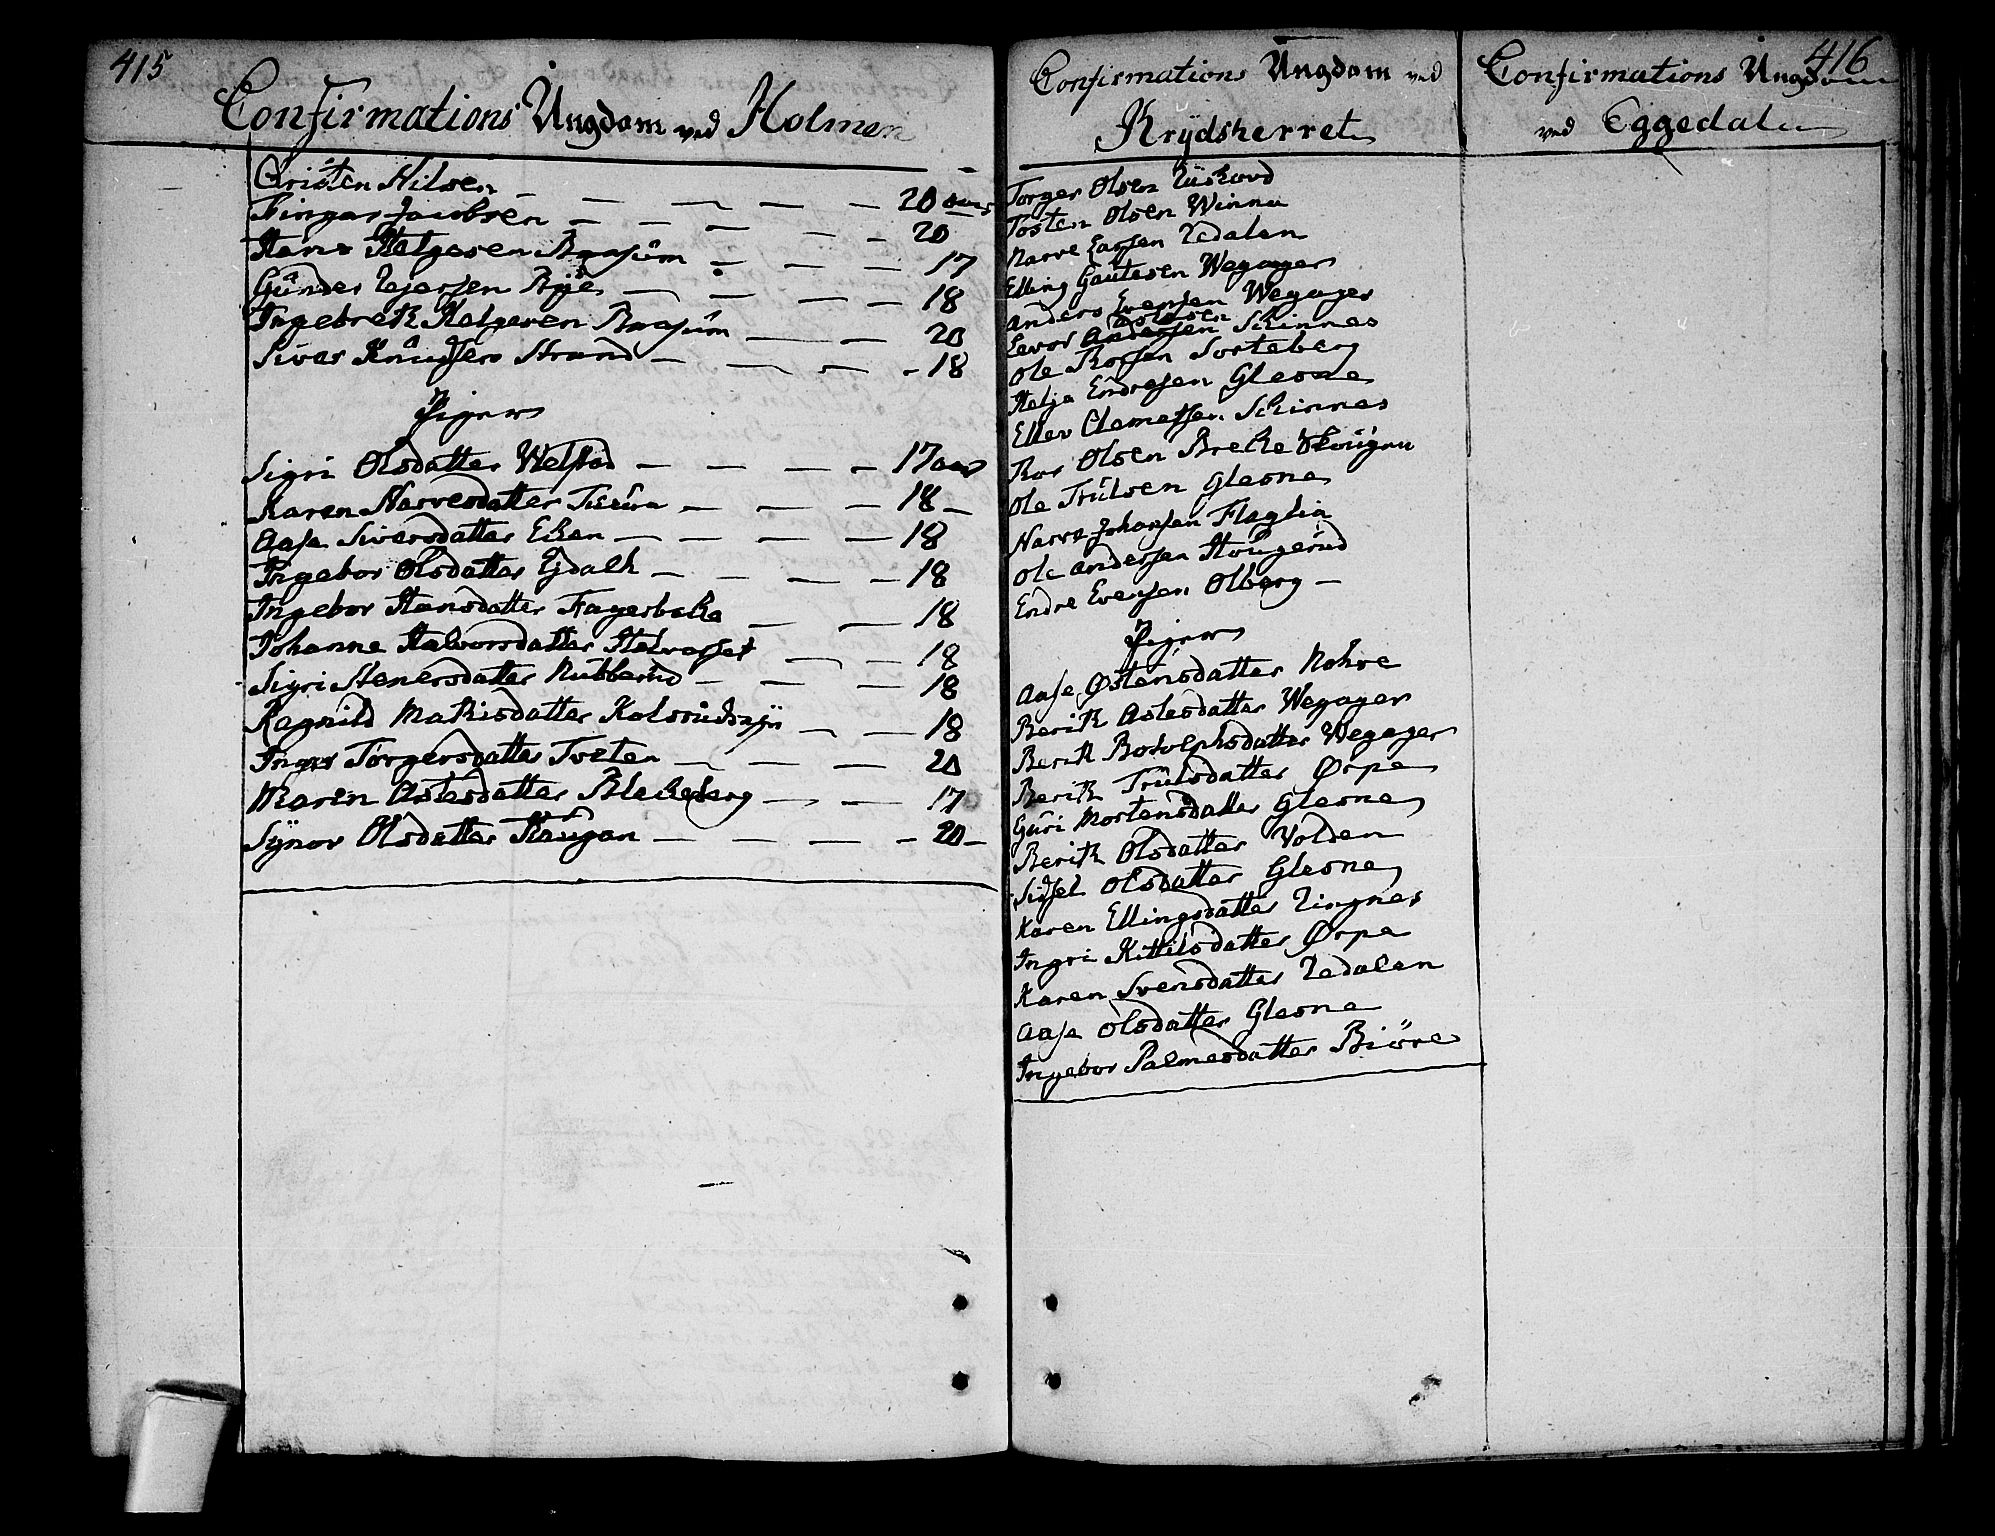 415
Confirmations Ungdom ved Holmen
Cristen Nilsen — 20 aar
Fingar Jacobsen — 20
Hans Helgesen Braaten — 17
Gunder Bye — 18
Ingebreth Helgesen — 20
Siver Knudsen Strand — 18
Piger
Sigri Olsdatter Welstad — 17 aar
Karen Narvesdatter — 18
Aase Siversdatter Eken — 18
Ingebor Olsdatter Ejdalh — 18
Ingebor Hansdatter Fagerbake — 18
Johanne Halvorsdatter — 18
Sigri Stenersdatter Nubberud — 18
Ragnild Mathisdatter Kolsrudsejen — 18
Inger Torgersdatter Tveten — 20
Maren Aslesdatter Blekeberg — 17
Synov Olsdatter Haugan — 20
416
Confirmations Ungdom ved
Krydsherret
Torger Olsen
Tosten Olsen Winna
Narve Larsen Medalen
Elling Gautesen Wegager
Anders Evensen Wegager
Aslesen
Eevor Andersen Skinnes
Ole Thorsen Sorteberg
Helje Endresen Glesne
Ellev Clemetsen Skinnes
Thor Olsen Breke Skougen
Ole Trulsen Glesne
Narve Johansen Flaglia
Ole Andersen Hougerud
Endre Evensen Olberg
Piger
Aase Østensdatter Nohre
Berith Aslesdatter Wegager
Berith Botolphsdatter Wegager
Berith Trulsdatter Ørpe
Guri Mortensdatter Glesne
Berith Olsdatter Volden
Sidsel Olsdatter Glesne
Karen Ellingsdatter Ringnes
Ingri Kittilsdatter Ørpe
Karen Svensdatter Medalen
Aase Olsdatter Glesne
Ingebor Palmesdatter Biöre
Confirmations Ungdom
ved Eggedalen